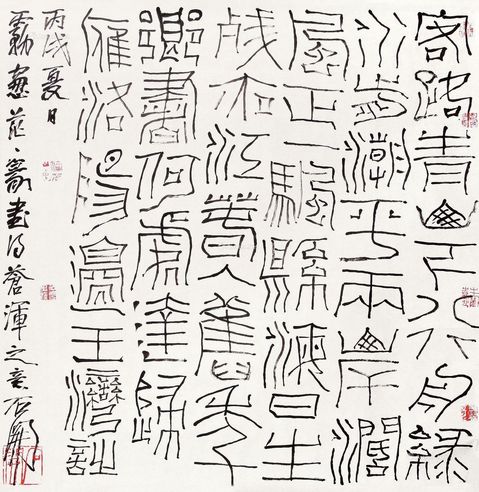 客路青山下行舟綠
水前潮平兩岸闊
風正一帆懸海日生
殘夜江春入舊年
鄉書何處達歸
雁洛陽邊王灣詩
丙戌夏日
蒼渾之意石開